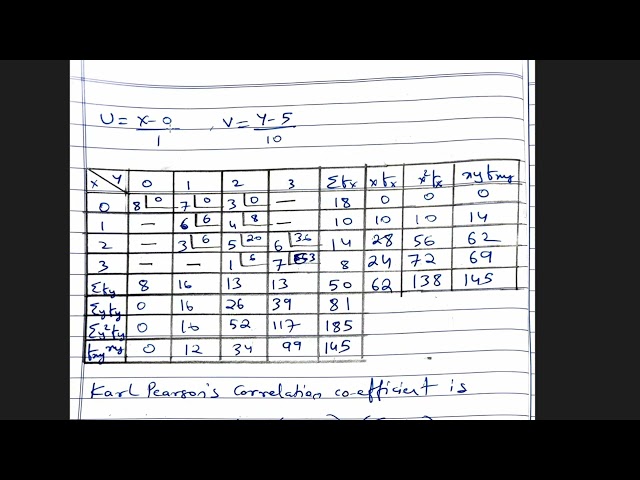 U = x-0/1 , V = Y-5/10
x y 0 1 2 3 Σfx xfx x²fx xyfxy
0 8 0 7 0 3 0 — 18 0 0 0
1 — 6 6 4 8 — 10 10 10 14
2 — 3 6 5 20 6 36 14 28 56 62
3 — — 1 6 7 63 8 24 72 69
Σfy 8 16 13 13 50 62 138 145
Σyfy 0 16 26 39 81
Σy²fy 0 16 52 117 185
fxy xy 0 12 34 99 145
Karl Pearson's Correlation co-efficient is